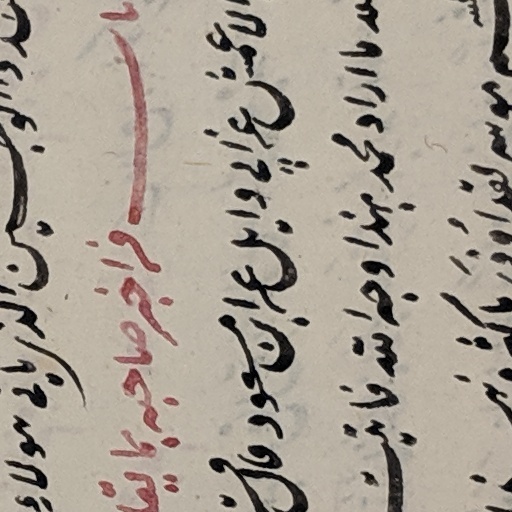 ذا الوجهين الذي ياتي هولاء
باب من اخبر صاحبه بما يقا
الاعمش عن ابي وايل عن ابن مسعود قال قسم
ما اراد محمد بهذا وجه الله فاتيت
موسى لقد اُوذيَ باكثر من هذا